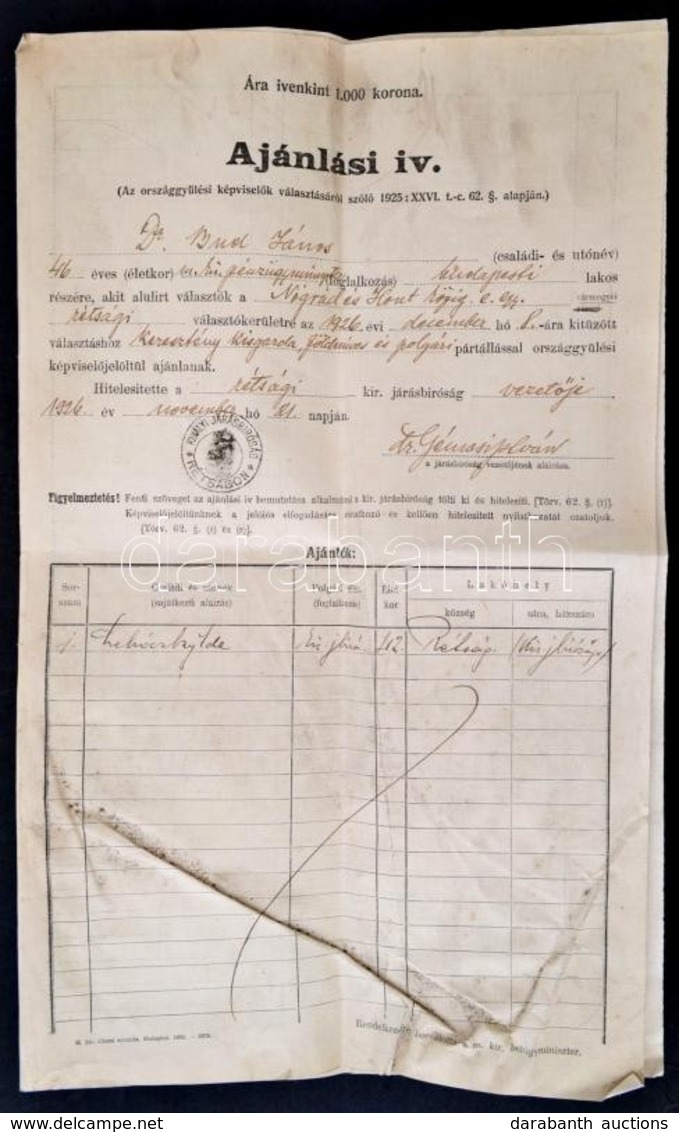 Ára ivenkint 1.000 korona.
Ajánlási iv.
(Az országgyülési képviselők választásáról szóló 1925 : XXVI. t.-c. 62. §. alapján.)
Dr Bud János (családi- és utónév)
46 éves (életkor) m. kir. pénzügyminiszter (foglalkozás) budapesti lakos
részére, akit alulirt választók a Nógrád és Hont közig. e. egy. vármegyei
rétsági választókerületre az 1926. évi december hó 8.-ára kitüzött
választáshoz Keresztény kisgazda, földmives és polgári pártállással országgyülési
képviselőjelöltül ajánlanak.
Hitelesitette a rétsági kir. járásbiróság vezetője
1926. év november hó 21. napján.
KIRÁLYI JÁRÁSBIRÓSÁG
RÉTSÁGON
Dr.
a járásbiróság vezetőjének aláirása.
Figyelmeztetés! Fenti szöveget az ajánlási iv bemutatása alkalmával a kir. járásbiróság tölti ki és hitelesiti. [Törv. 62. §.
Képviselőjelöltünknek a jelölés elfogadására vonatkozó és kellően hitelesitett nyilatkozatát csatoljuk.
[Törv. 62. §.
Ajánlók:
Sor-
szám
Családi és utónév
(sajátkezű aláirás)
Polgári áll.
(foglalkozás)
Élet-
kor
Lakóhely
község
utca, házszám
1. kir. jbiró 42. Rétság.
Rendelkezésre bocsátotta a m. kir. belügyminiszter.
darabanth
delcampe.net
darabanth auctions